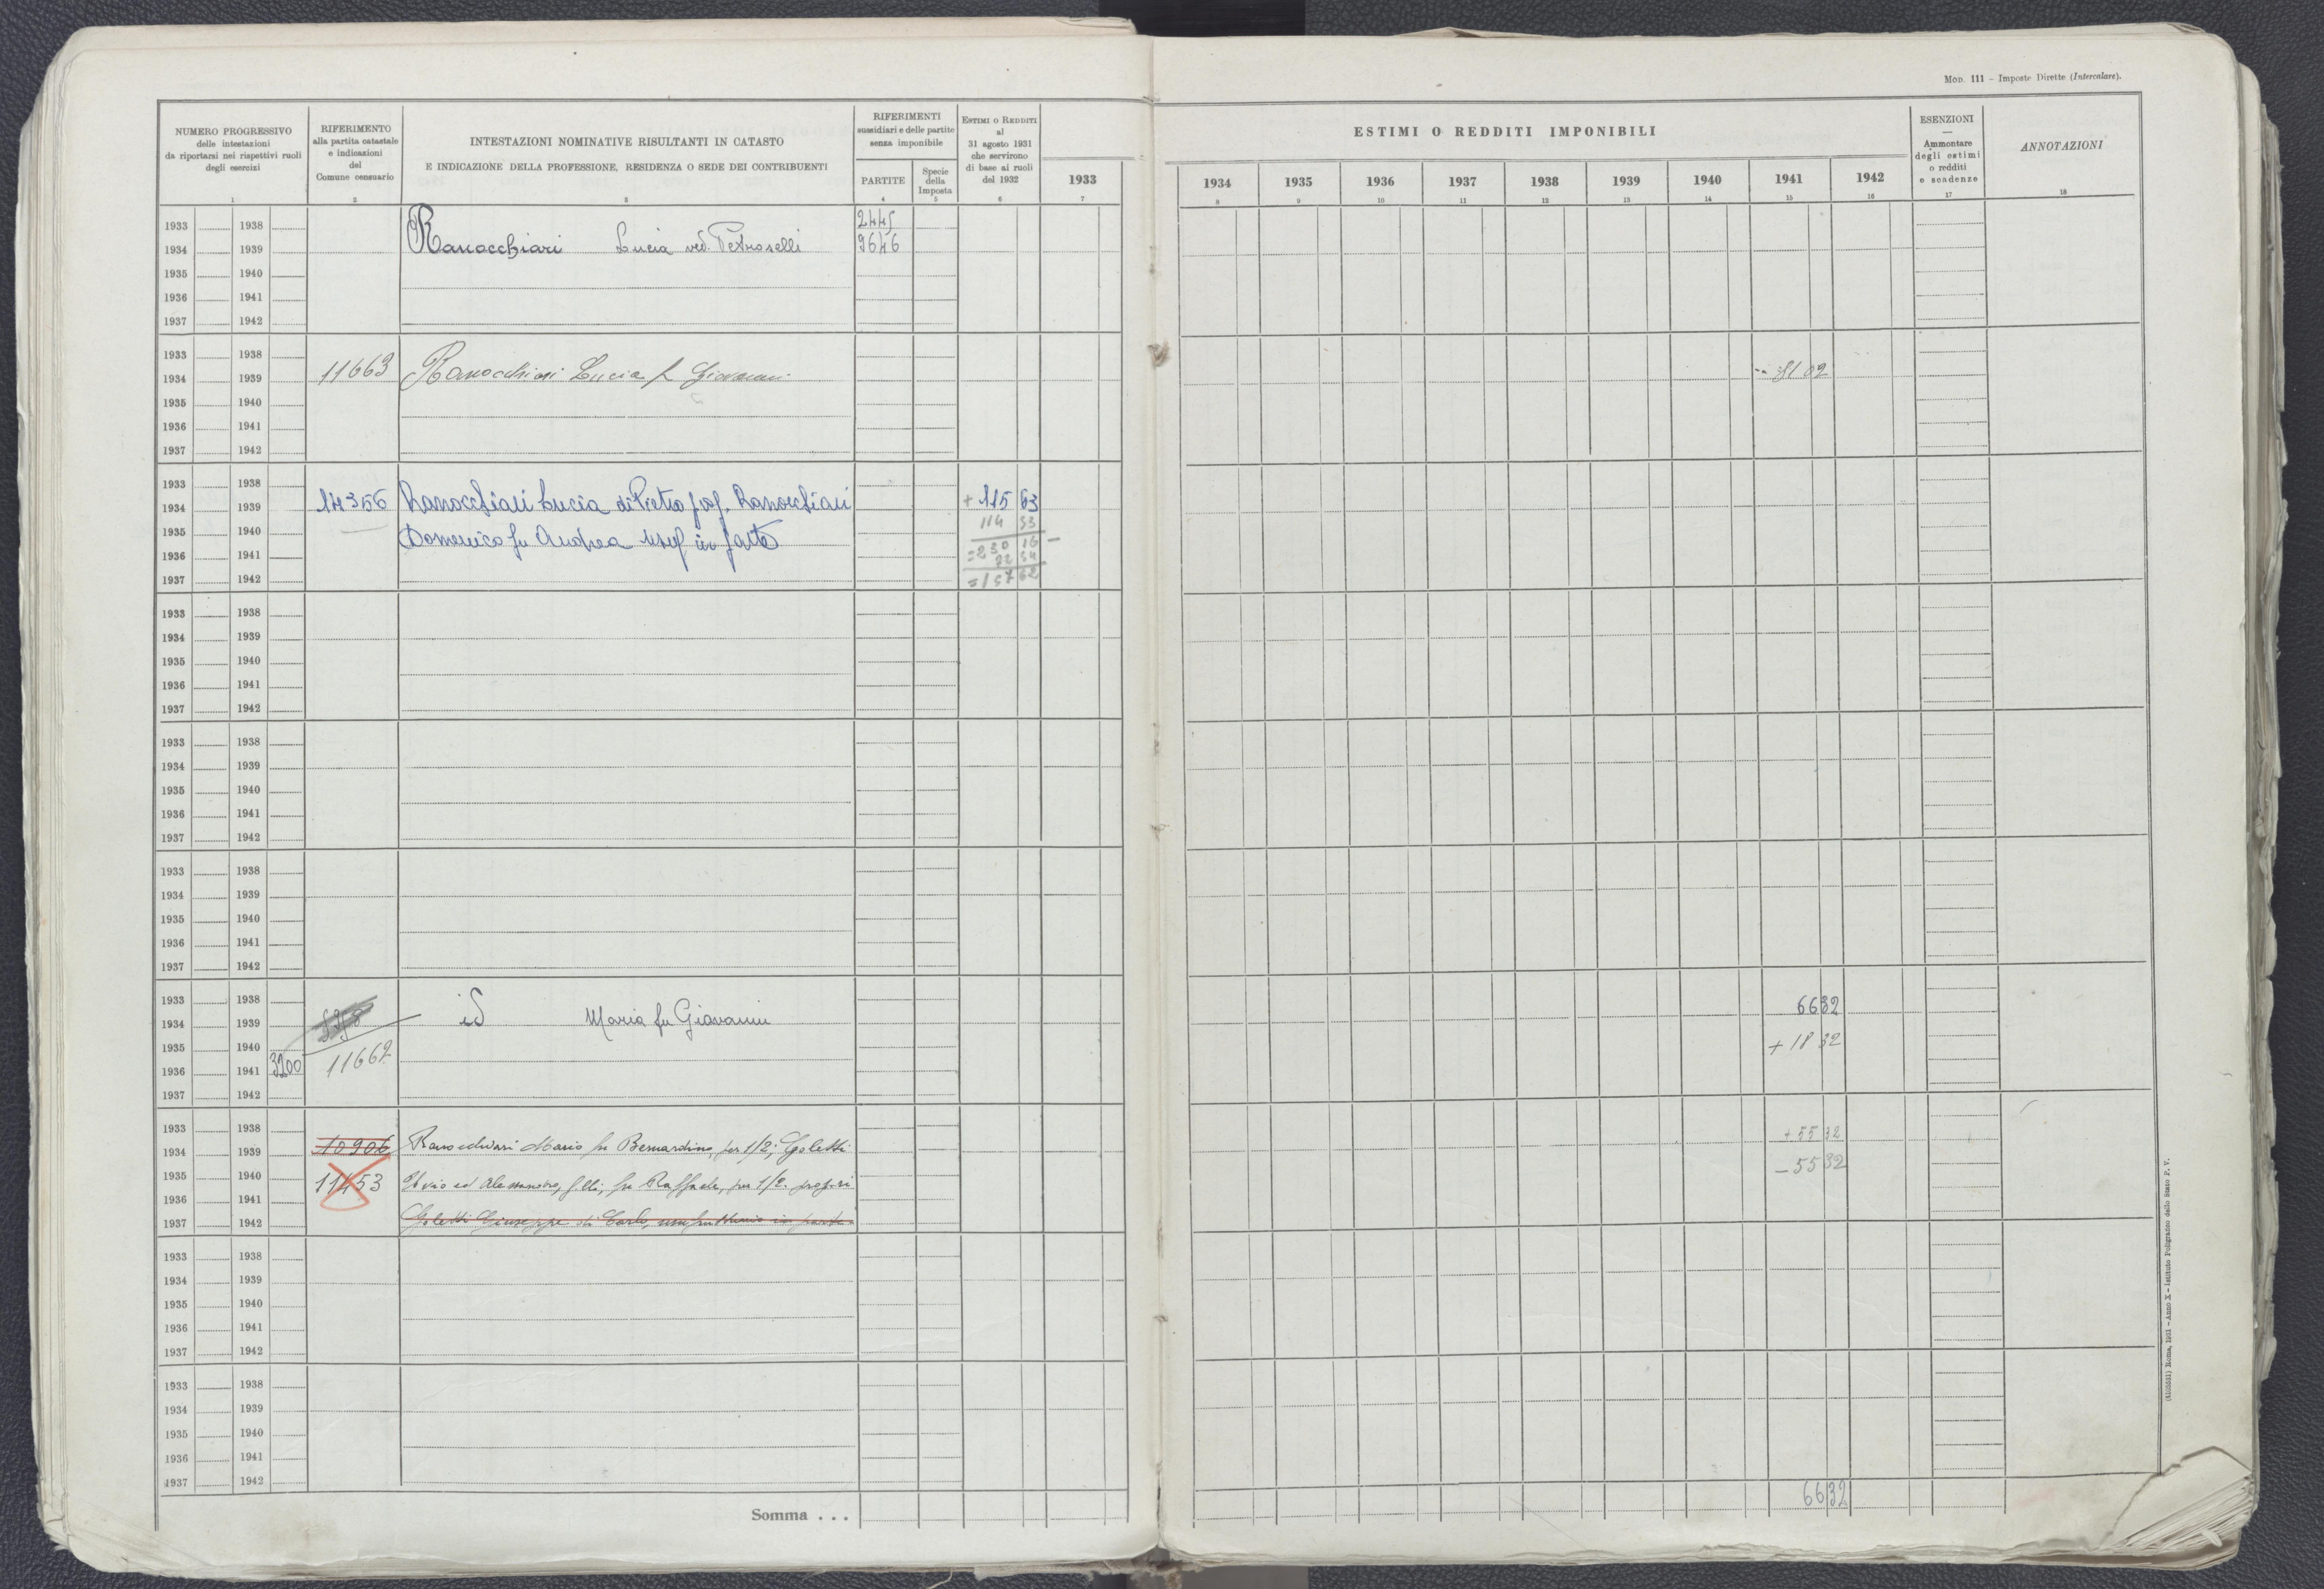 Mod. 111 - Imposte Dirette (Intercalare).
NUMERO PROGRESSIVO
delle intestazioni
da riportarsi nei rispettivi ruoli
degli esercizi
1
RIFERIMENTO
alla partita catastale
e indicazioni
del
Comune censuario
2
INTESTAZIONI NOMINATIVE RISULTANTI IN CATASTO
E INDICAZIONE DELLA PROFESSIONE, RESIDENZA O SEDE DEI CONTRIBUENTI
3
RIFERIMENTI
sussidiari e delle partite
senza imponibile
PARTITE
4
Specie
della
Imposta
5
ESTIMI O REDDITI
al
31 agosto 1931
che servirono
di base ai ruoli
del 1932
6
ESTIMI O REDDITI IMPONIBILI
1933 1934 1935 1936 1937 1938 1939 1940 1941 1942
7 8 9 10 11 12 13 14 15 16
ESENZIONI
—
Ammontare
degli estimi
o redditi
e scadenze
17
ANNOTAZIONI
18
1933 1938 2445
1934 1939 Ranocchiari Lucia ved. Petroselli 9646
1935 1940
1936 1941
1937 1942
1933 1938
1934 1939 11663 Ranocchiari Lucia f. Giovanni 81 02
1935 1940
1936 1941
1937 1942
1933 1938
1934 1939 14356 Ranocchiari Lucia di Pietro prop. Ranocchiari + 115 63
1935 1940 Domenico fu Andrea usuf in parte 114 53
1936 1941 = 230 16
1937 1942 = 157 62
1933 1938
1934 1939
1935 1940
1936 1941
1937 1942
1933 1938
1934 1939
1935 1940
1936 1941
1937 1942
1933 1938
1934 1939
1935 1940
1936 1941
1937 1942
1933 1938 66 32
1934 1939 id Maria fu Giovanni
1935 1940 + 18 32
1936 1941 3200 11662
1937 1942
1933 1938 + 55 32
1934 1939 10906 Ranocchiari Mario fu Bernardino, per 1/2; Goletti
1935 1940 11453 ed Alessandro, f.lli, fu Raffaele, per 1/2. - 55 32
1936 1941
1937 1942 Goletti Giuseppe di Carlo, usufruttuario in parte
1933 1938
1934 1939
1935 1940
1936 1941
1937 1942
1933 1938
1934 1939
1935 1940
1936 1941
1937 1942
Somma . . . 66 32
Roma, 1931 - Anno X - Istituto Poligrafico dello Stato P. V.